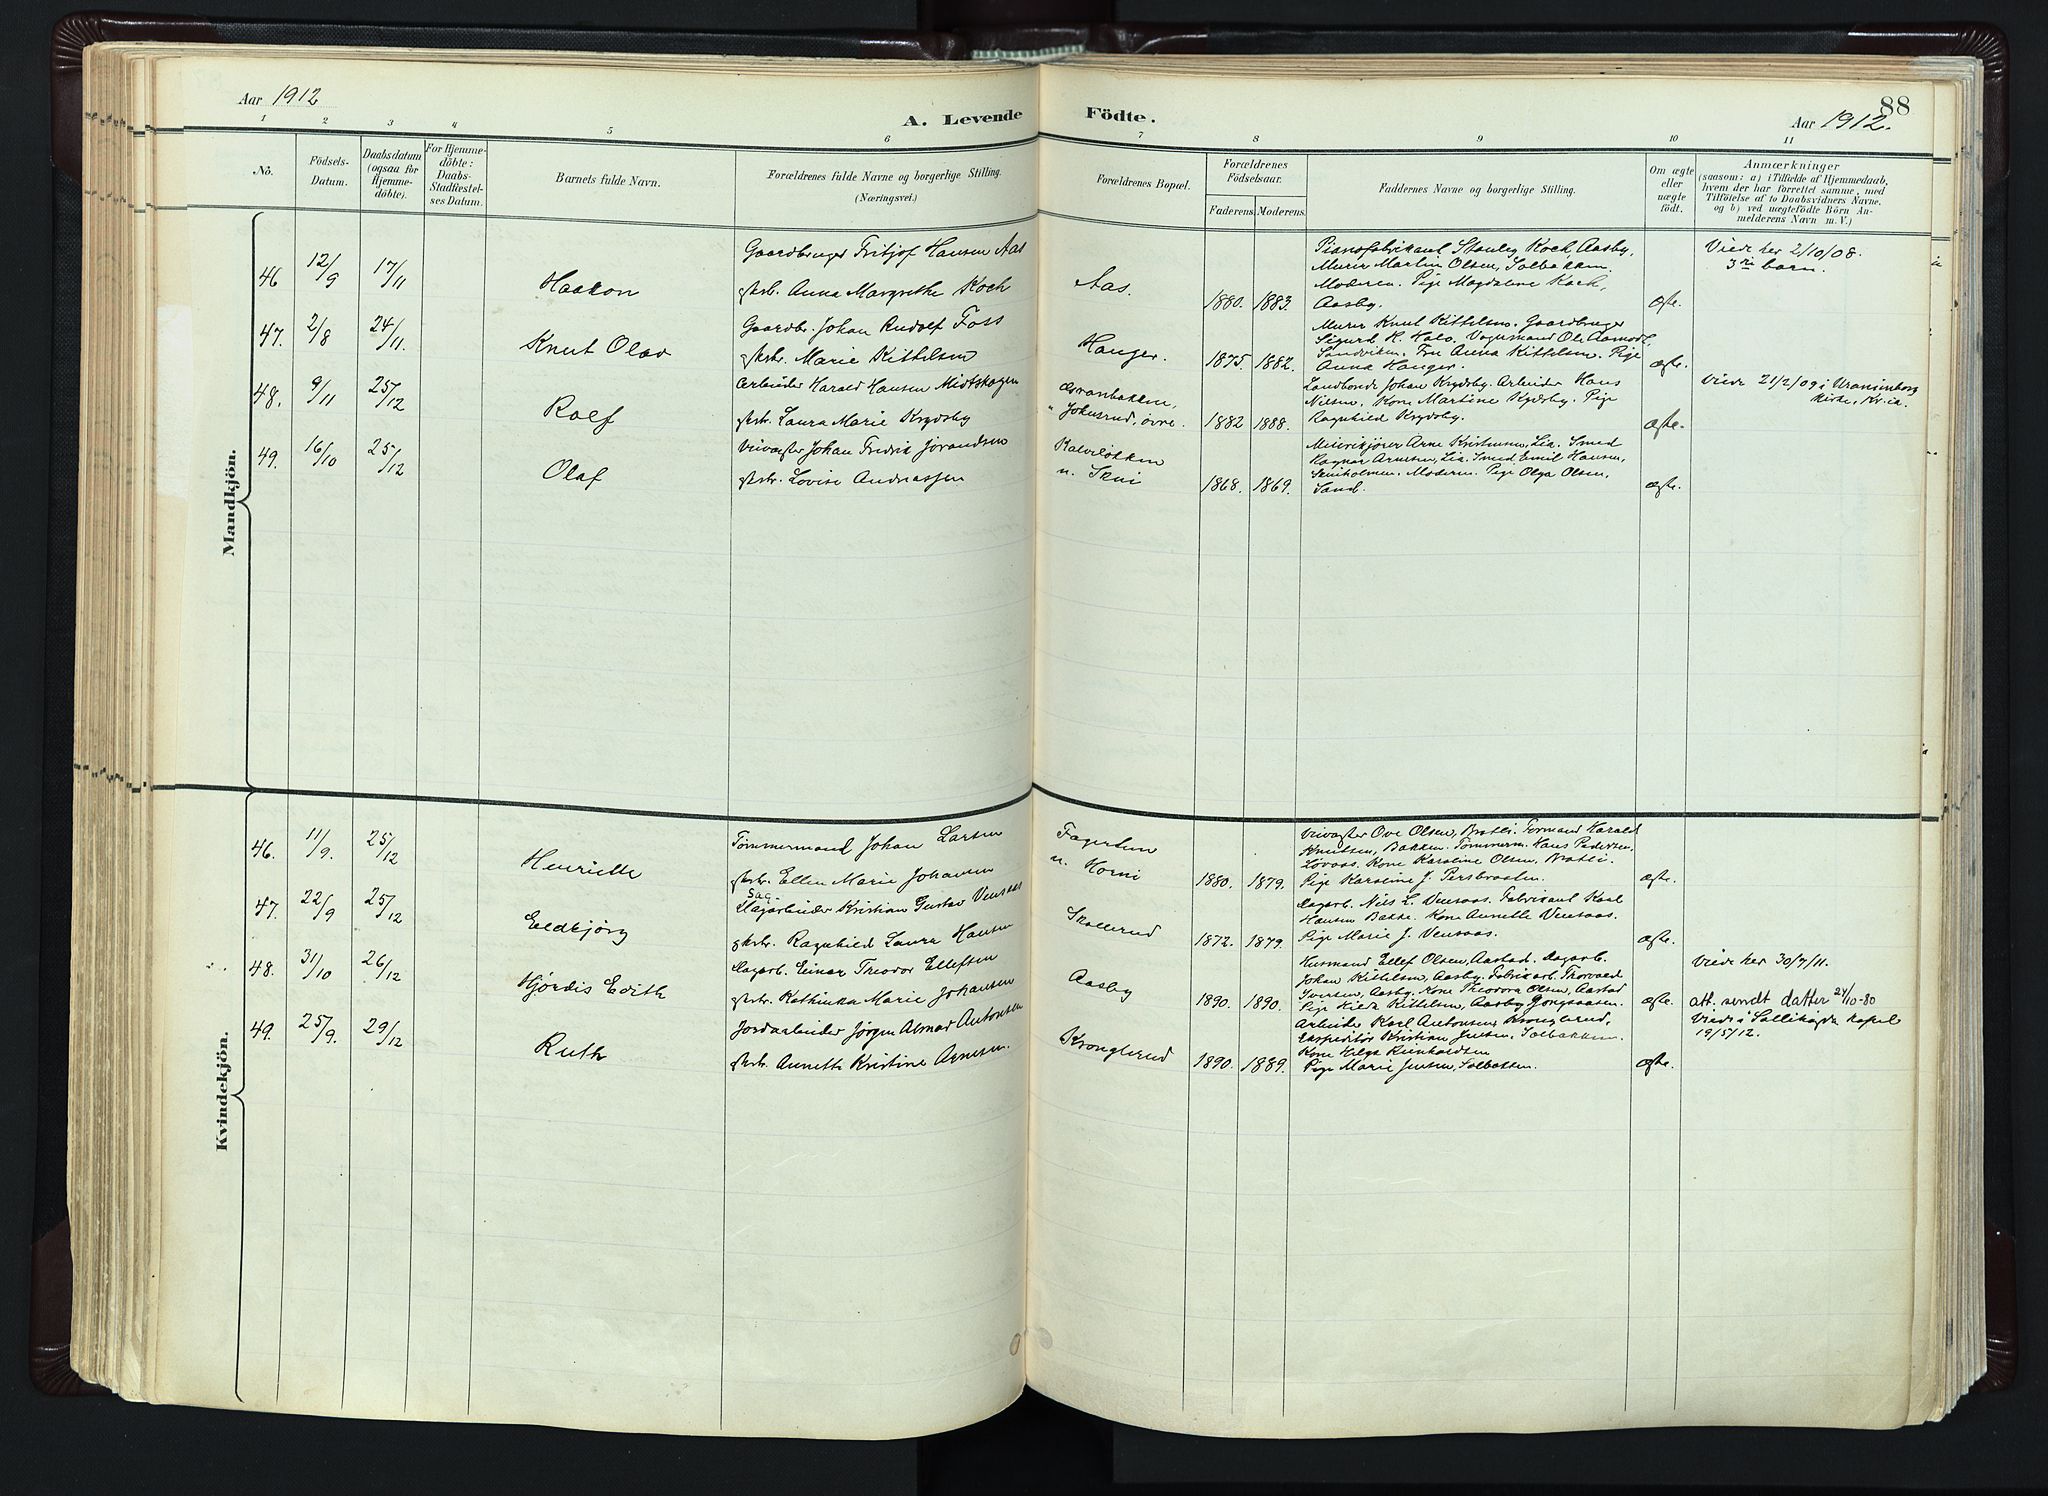 Aar 1912
A. Levende
Födte.
88
Aar 1912.
1 2 3 4 5 6 7 8 9 10 11
No.
Födsels-
Datum.
Daabsdatum
(ogsaa for
Hjemme-
döbte).
For Hjemme-
döbte:
Daabs-
Stadfæstel-
ses Datum.
Barnets fulde Navn.
Forældrenes fulde Navne og borgerlige Stilling.
(Næringsvei.)
Forældrenes Bopæl.
Forældrenes
Födselsaar.
Faderens. Moderens.
Faddernes Navne og borgerlige Stilling.
Om ægte
eller
uægte
födt.
Anmærkninger
(saasom: a) i Tilfælde af Hjemmedaab,
hvem der har forrettet samme, med
Tilföielse af to Daabsvidners Navne.
og b) ved uægtefödte Börn An-
melderens Navn m. V.)
Mandkjön.
46 12/9 17/11 Haakon
Gaardbruger Fritjof Hansen Aas
gkstr. Anna Margrethe Koch
Aas.
1880. 1883.
Pianofabrikant Stanley Koch, Aasby.
Murer Martin Olsen, Solbakken.
Moderen. Pige Magdalene Koch,
Aasby.
ægte.
Viede her 2/10/08.
3die barn.
47. 2/8 24/11. Knut Olav
Gaardbr. Johan Rudolf Foss
gkstr. Marie Kittelsen
Hanger.
1875. 1882.
Murer Knut Kittelsen. Gaardbruger
Sigurd H. Halo. Vognmand Ole Aamodt,
Sandviken. Fru Anna Kittelsen. Pige
Anna Hanger.
ægte.
48. 9/11 25/12 Rolf
Arbeider Harald Hansen Midtskogen
gkstr. Laura Marie Krydsby
Johnsrud, øvre.
1882 1888.
Landbonde Johan Krydsby. Arbeider Hans
Nilsen, Kone Martine Krydsby. Pige
Ragnhild Krydsby.
ægte.
Viede 21/2/09 i Uranienborg
kirke, Kr.ia.
49. 16/10 25/12 Olaf
Veivogter Johan Fredrik Jørandsen
gkstr. Lovise Andreassen
u. Skui
1868. 1869.
Meierikjører Arne Kristensen, Lia. Smed
Ragnar Arnesen, Lia. Smed Emil Hansen,
Skuiholmen. Moderen. Pige Olga Olsen,
Sand.
ægte.
Kvindekjön.
46. 11/9. 25/12 Henriette
Tømmermand Johan Larsen
gkstr. Ellen Marie Johansen
Fagertun
u. Horni
1880. 1879.
Veivogter Ove Olsen, Bratli. Formand Harald
Knudsen, Bakken. Tømmerm. Hans Pedersen,
Løvaas. Kone Karoline Olsen, Bratli.
Pige Karoline J. Persbraaten.
ægte.
47. 22/9 25/12 Eldbjørg
Sagarbeider Kristian Gustav Vensaas
gkstr. Ragnhild Laura Hansen
Skollerud
1872. 1879.
Dagarb. Nils L. Vensaas. Fabrikant Karl
Hansen Bakke. Kone Annette Vensaas.
Pige Marie J. Vensaas.
ægte.
48. 31/10 26/12 Hjørdis Edith
Dagarb. Einar Theodor Ellefsen
gkstr. Kathinka Marie Johansen
Aasby
1890. 1890.
Husmand Ellef Olsen, Aastad. Dagarb.
Johan Kittelsen, Aasby. Fabrikarb. Thorvald
Iversen, Aasby. Kone Theodora Olsen, Aastad
Pige Hilda Kittelsen, Aasby Jongsaasen.
ægte.
Viede her 30/7/11.
att. sendt datter 24/10-80
49. 25/9. 29/12 Ruth
Jordarbeider Jørgen Almar Antonsen
gkstr. Annette Kristine Arnesen.
Kronglerud
1890. 1889.
Arbeider Karl Antonsen, Kronglerud,
Expeditør Kristian Jensen, Solbakken.
Kone Helga Reinhardtsen
Pige Marie Jensen, Solbakken.
ægte.
Viede i Sollihøgda kapel
19/5/12.